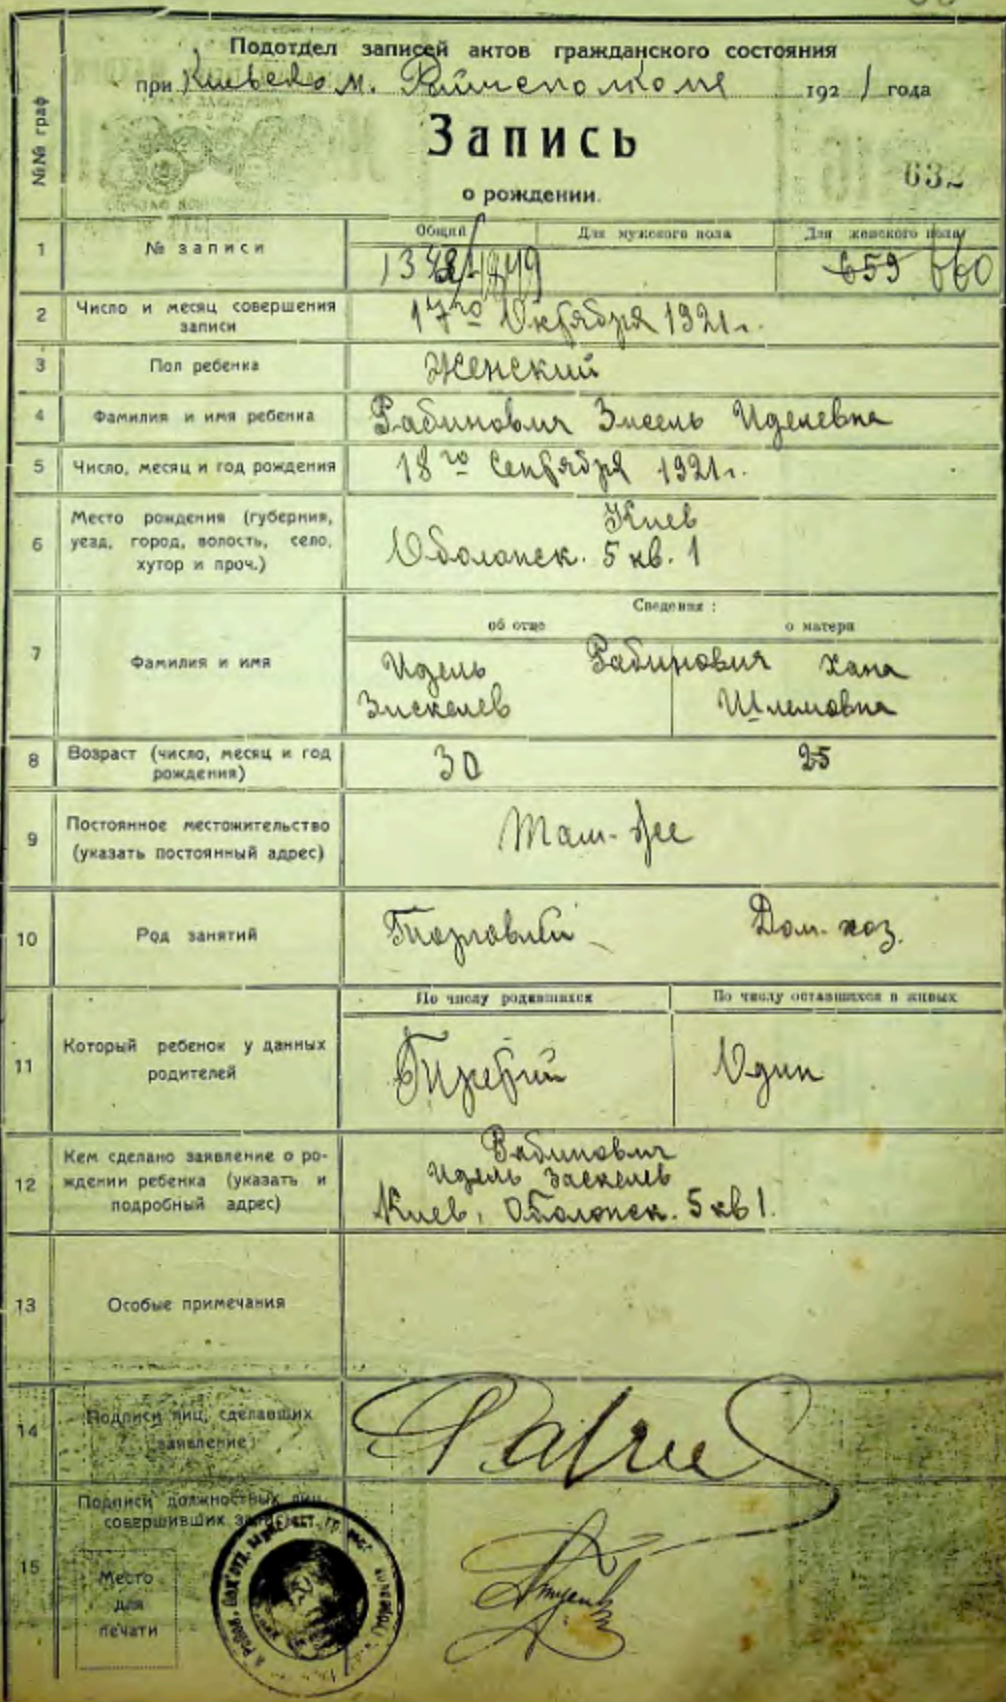 №№ граф
Подотдел записей актов гражданского состояния
при Киевском. Райисполкоме 1921 года
Запись
о рождении.
632
1 № записи
Общий Для мужского пола Для женского пола
1348/1349 659 660
2 Число и месяц совершения записи
17го Октября 1921г.
3 Пол ребенка
Женский
4 Фамилия и имя ребенка
Рабинович Зисель Иделевна
5 Число, месяц и год рождения
18го Сентября 1921г.
6 Место рождения (губерния,
уезд, город, волость, село,
хутор и проч.)
Киев
Оболонск. 5 кв. 1
Сведения:
об отце о матери
7 Фамилия и имя
Идель Рабинович Хана
Зискелев Шлемовна
8 Возраст (число, месяц и год
рождения)
30 25
9 Постоянное местожительство
(указать постоянный адрес)
Там-же
10 Род занятий
Торговлей Дом. хоз.
По числу родившихся По числу оставшихся в живых
11 Который ребенок у данных
родителей
Третий Один
12 Кем сделано заявление о ро-
ждении ребенка (указать и
подробный адрес)
Рабинович
Идель Заскелев
Киев, Оболонск. 5 кв 1.
13 Особые примечания
14 Подписи лиц, сделавших
заявление
15 Подписи должностных лиц,
совершивших
Место
для
печати